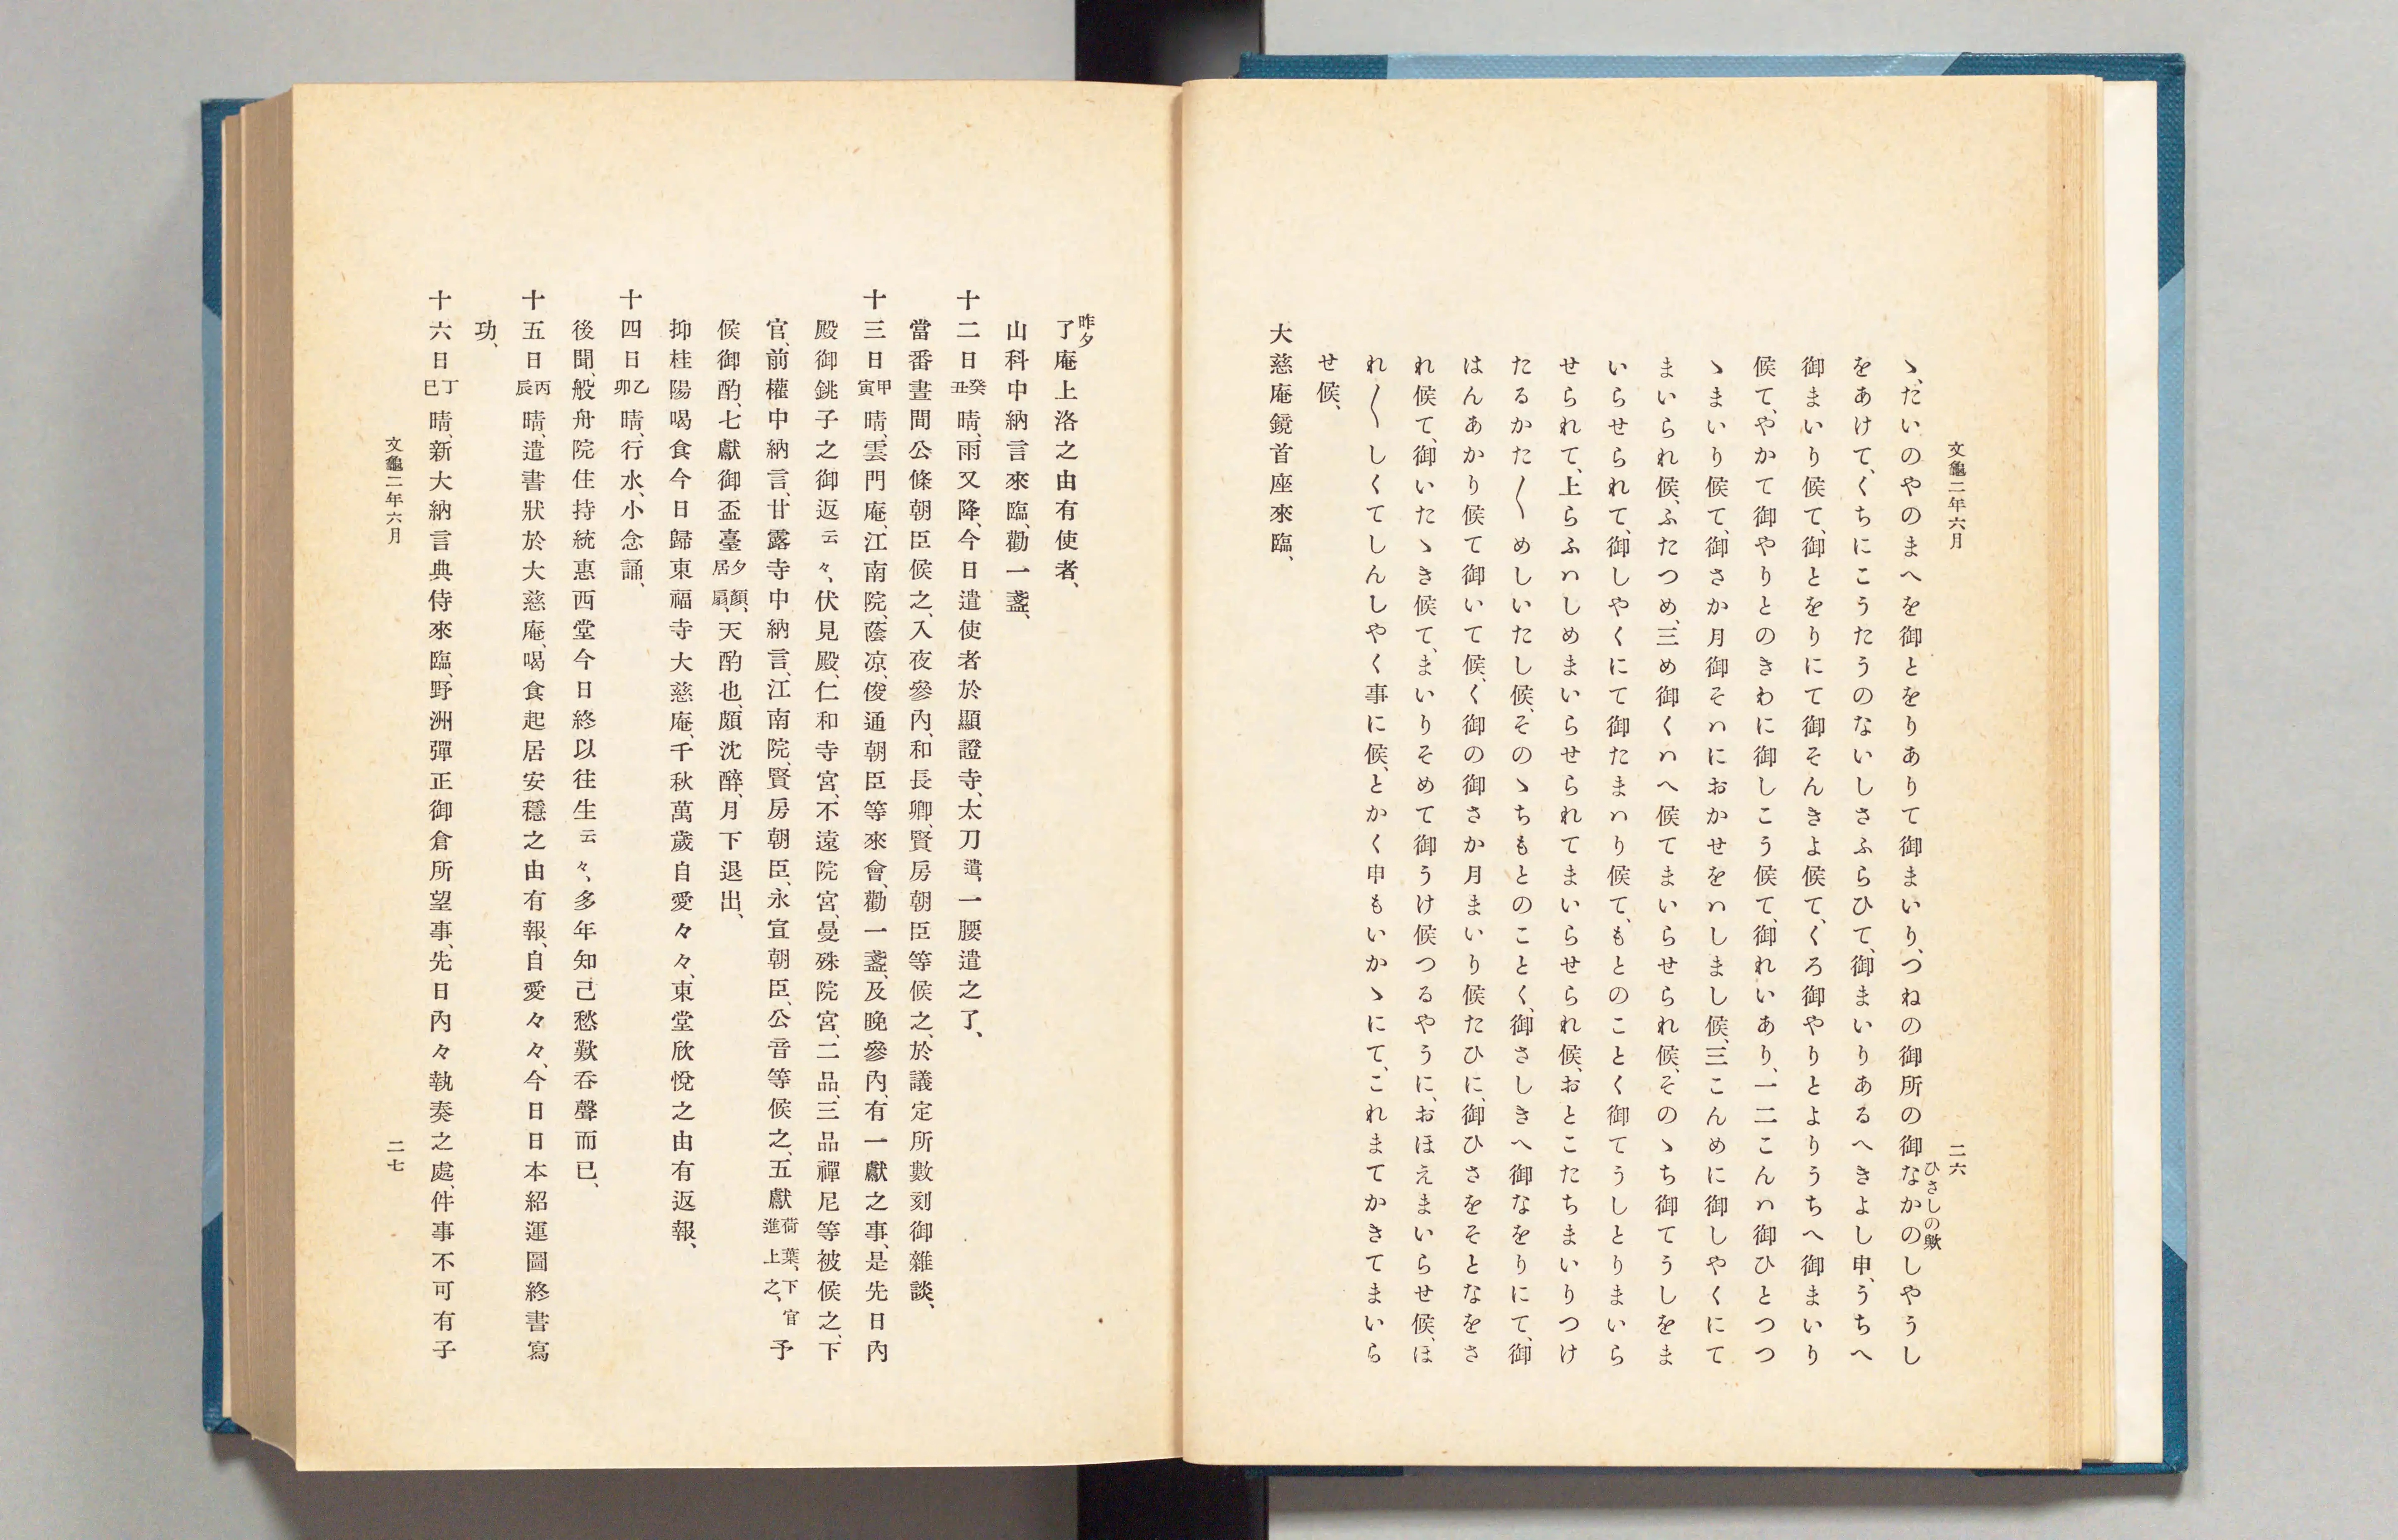 文龜二年六月
二六
ひさしの歟
ゝ、たいのやのまへを御とをりありて御まいり、つねの御所の御なかのしやうし
をあけて、くちにこうたうのないしさふらひて、御まいりあるへきよし申、うちへ
御まいり候て、御とをりにて御そんきよ候て、くろ御やりとよりうちへ御まいり
候て、やかて御やりとのきわに御しこう候て、御れいあり、一二こんハ御ひとつつ
ゝまいり候て、御さか月御そハにおかせをハしまし候、三こんめに御しやくにて
まいられ候、ふたつめ、三め御くハへ候てまいらせられ候、そのゝち御てうしをま
いらせられて、御しやくにて御たまハり候て、もとのことく御てうしとりまいら
せられて、上らふハしめまいらせられてまいらせられ候、おとこたちまいりつけ
たるかた〱めしいたし候、そのゝちもとのことく、御さしきへ御なをりにて、御
はんあかり候て御いて候、く御の御さか月まいり候たひに、御ひさをそとなをさ
れ候て、御いたゝき候て、まいりそめて御うけ候つるやうに、おほえまいらせ候、ほ
れ〱しくてしんしやく事に候、とかく申もいかゝにて、これまてかきてまいら
せ候、
大慈庵鏡首座來臨、
昨夕
了庵上洛之由有使者、
山科中納言來臨、勸一盞、
十二日癸丑晴、雨又降、今日遣使者於顯證寺、太刀遣、一腰遣之了、
當番晝間公條朝臣候之、入夜參內、和長卿、賢房朝臣等候之、於議定所數刻御雜談、
十三日甲寅晴、雲門庵、江南院、蔭凉、俊通朝臣等來會、勸一盞、及晚參內、有一獻之事、是先日內
殿御銚子之御返云々、伏見殿、仁和寺宮、不遠院宮、曼殊院宮、二品、三品禪尼等被候之、下
官、前權中納言、甘露寺中納言、江南院、賢房朝臣、永宣朝臣、公音等候之、五獻荷葉、下官進上之、予
候御酌、七獻御盃臺夕顏、居扇、天酌也、頗沈醉、月下退出、
抑桂陽喝食今日歸東福寺大慈庵、千秋萬歲自愛々々、東堂欣悅之由有返報、
十四日乙卯晴、行水、小念誦、
後聞、般舟院住持統惠西堂今日終以往生云々、多年知己愁歎呑聲而已、
十五日丙辰晴、遣書狀於大慈庵、喝食起居安穩之由有報、自愛々々、今日日本紹運圖終書寫
功、
十六日丁巳晴、新大納言典侍來臨、野洲彈正御倉所望事、先日內々執奏之處、件事不可有子
文龜二年六月
二七